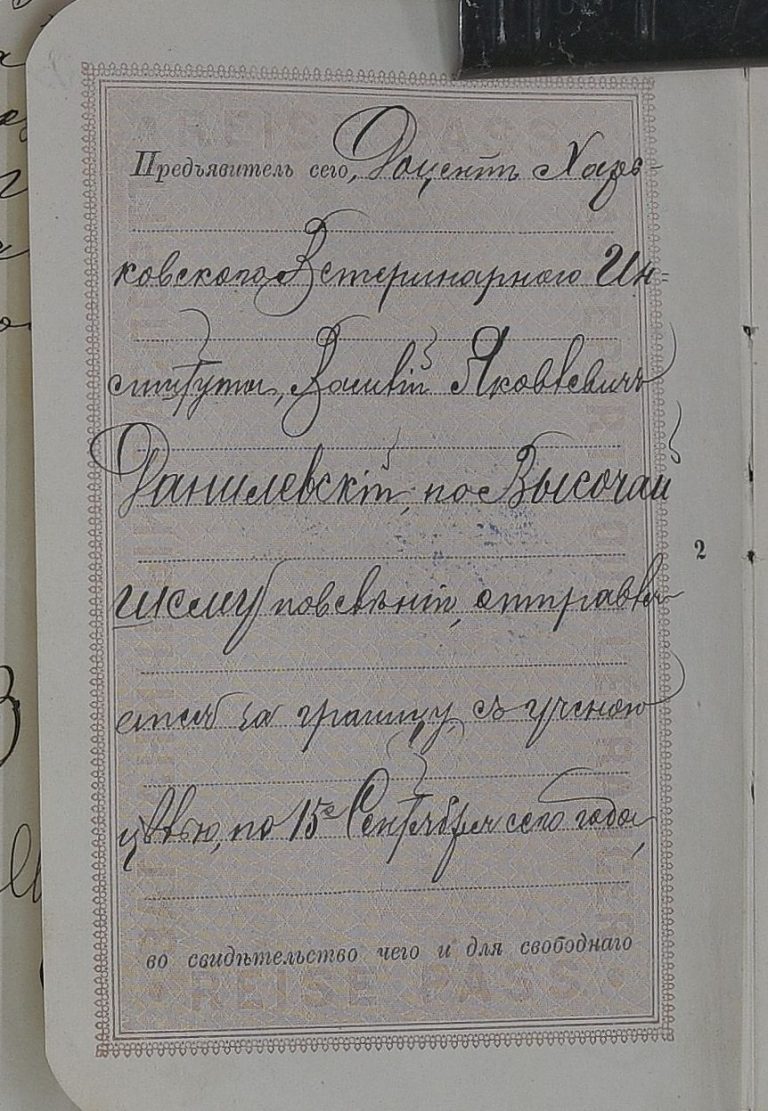 Предъявитель сего, Доцентъ Харь-
ковскаго Ветеринарнаго Ин=
ститута, Василій Яковлевичъ
Данилевскій, по Высочай
шему повелѣнію, отправля-
ется за границу, съ ученою
цѣлью, по 15е Сентября сего года,
2
во свидѣтельство чего и для свободнаго
REISE PASS